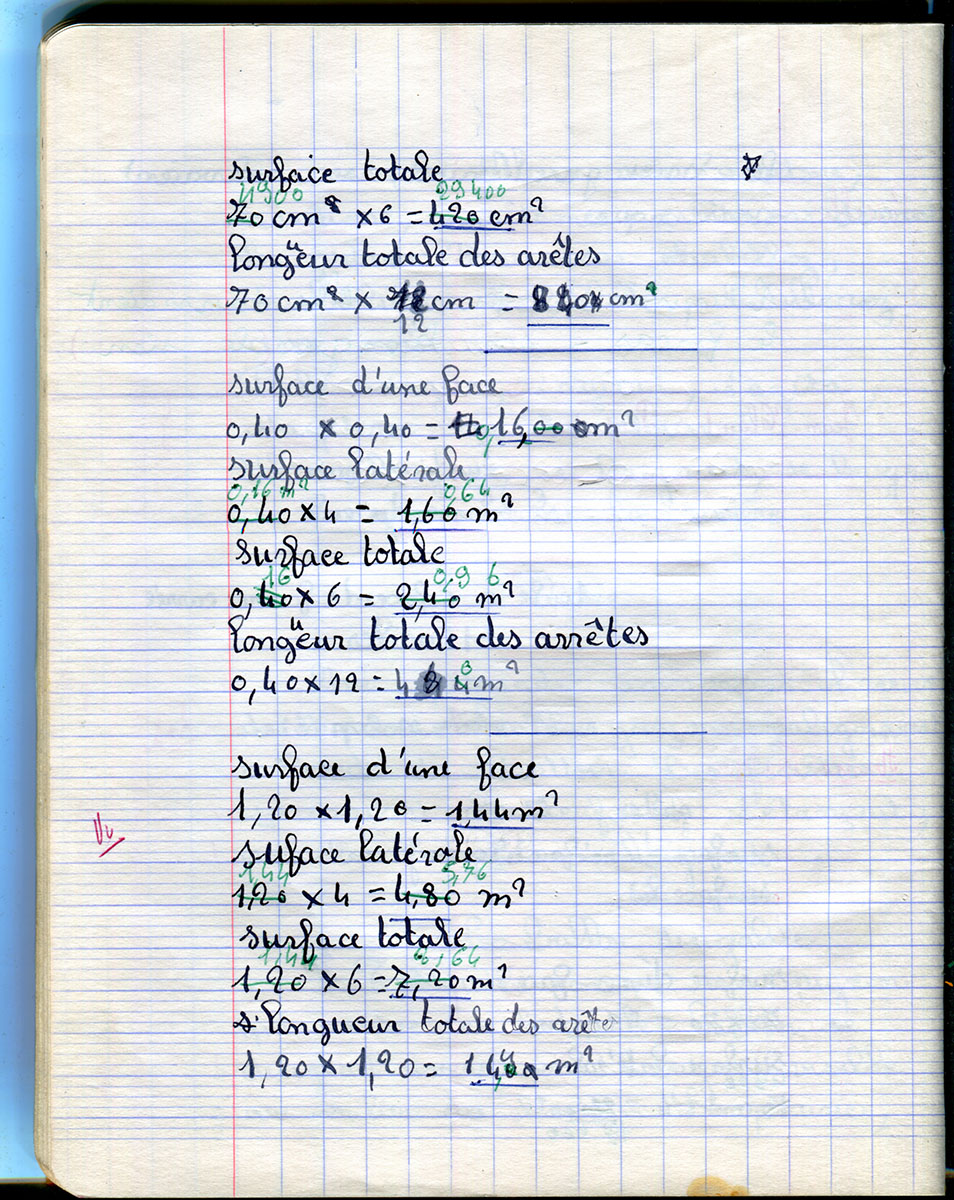 surface totale
4900 29400
70 cm² × 6 = 420 cm²
longueur totale des arêtes
70 cm² × cm = cm²
12
surface d'une face
0,40 × 0,40 = 16,00 m²
surface latérale
0,16 m² 0,64
0,40 × 4 = 1,60 m²
surface totale
16 0,96
0,40 × 6 = 2,40 m²
longueur totale des arrêtes
0,40 × 12 = m²
surface d'une face
1,20 × 1,20 = 1,44 m²
suface latérale
1,44 5,76
1,20 × 4 = 4,80 m²
Vu
surface totale
1,44 8,64
1,20 × 6 = 7,20 m²
longueur totale des arêtes
1,20 × 1,20 = m²